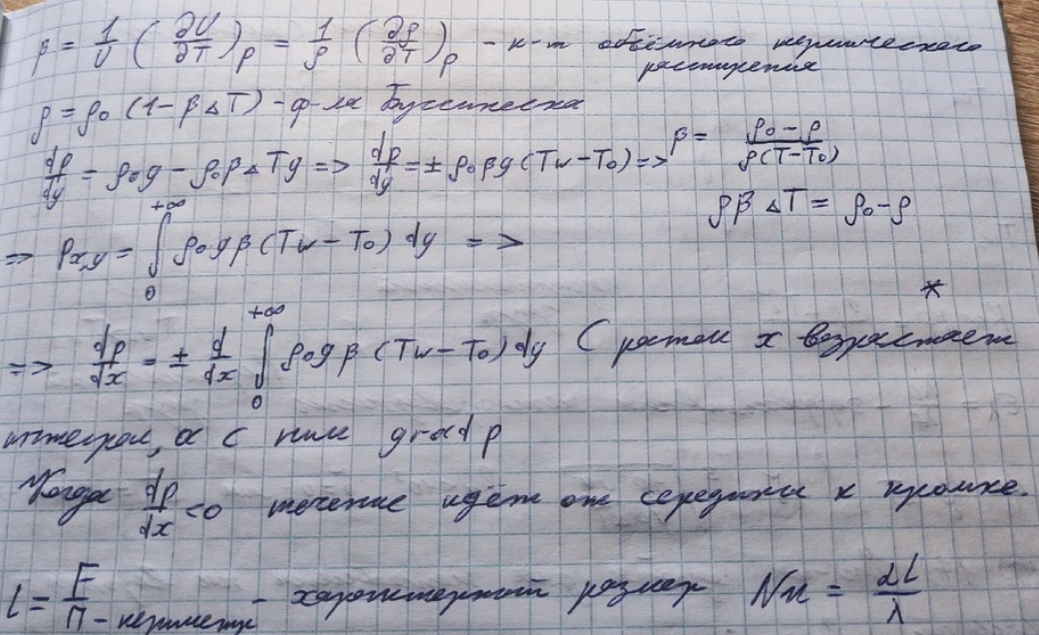 β = 1/V (∂V/∂T)p = 1/ρ (∂ρ/∂T)p - к-т объёмного термического
расширения
ρ = ρ0 (1 - β△T) - ф-ла Буссинеска
dp/dy = ρ0g - ρ0β△Tg => dp/dy = ± ρ0βg(Tw - T0) => β = (ρ0 - ρ)/(ρ(T - T0))
ρβ△T = ρ0 - ρ
=> Px,y = ∫₀^{+∞} ρ0gβ(Tw - T0) dy =>
*
=> dp/dx = ± d/dx ∫₀^{+∞} ρ0gβ(Tw - T0) dy С ростом x возрастает
интеграл, а с ним grad p
Когда dp/dx <0 течение идёт от середины к кромке.
l = F/П - периметр - характерный размер Nu = αl/λ